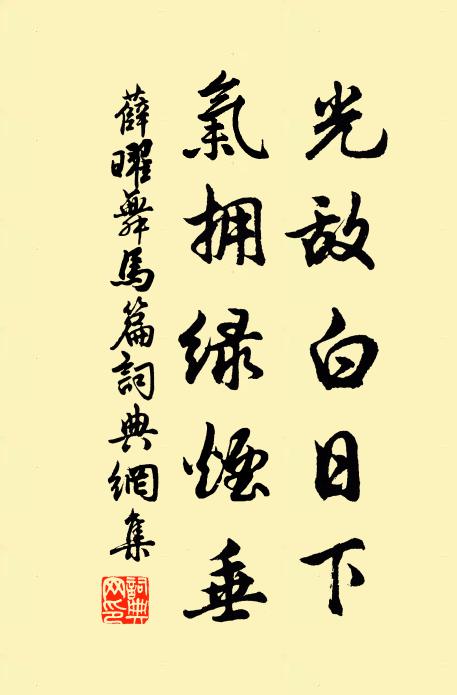 光敌白日下
氣拥绿煙垂
薛曜舞馬篇詞典網集
詞典網印